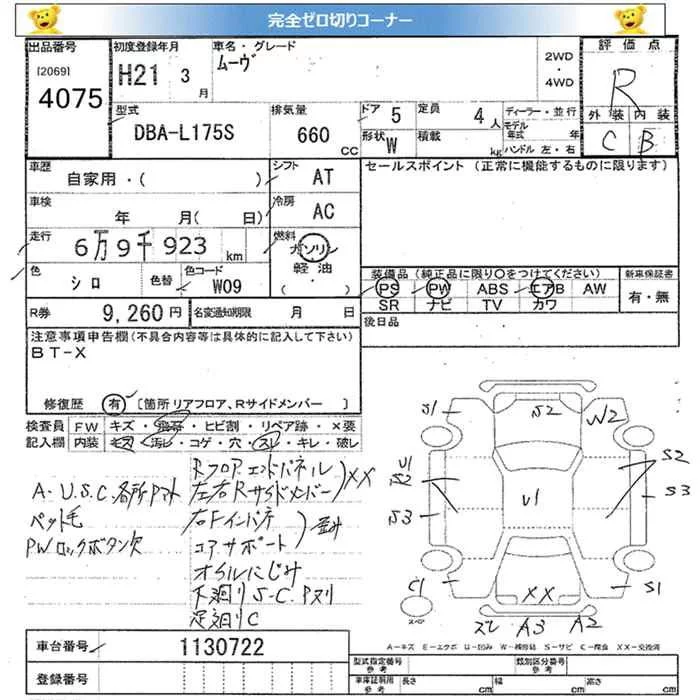 完全ゼロ切りコーナー
出品番号 初度登録年月 車名・グレード 評価点
[2069] 4075 H21 3月 ムーヴ 2WD・4WD R
外装 内装
C B
型式 排気量 ドア 5 定員 4人 ディーラー・並行
DBA-L175S 660CC 形状 W 積載 kg モデル年式 年
ハンドル 左・右
車歴 シフト セールスポイント (正常に機能するものに限ります)
自家用・( ) AT
車検 冷房
年 月( 日) AC
走行 燃料
6万9千923km ガソリン
軽油・( )
色 シロ 色替 色コード W09
装備品 (純正品に限り〇をつけてください) 新車保証書
PS PW ABS エアB AW 有・無
SR ナビ TV カワ
R券 9,260円 名変通知期限 月 日 後日品
注意事項申告欄 (不具合内容等は具体的に記入して下さい)
BT-X
修復歴 有 [箇所 リアフロア、Rサイドメンバー ]
検査員記入欄 FW キズ・ ・ヒビ割・リペア跡・×要
内装 キズ・汚レ・コゲ・穴・スレ・キレ・破レ
Rフロア エンドパネル
左右Rサイドメンバー XX
右Fインパネ
コアサポート 歪み
オイルにじみ
下廻り S-C.Pヌリ
足廻り C
A・U.S.C.各所
ペット毛
PWロックボタン欠
S1 S2 W2
U1 S2 S2
S3 U1 S3
C1 XX S1
スペア スレ A3 A2
A-キズ E-エクボ U-凹み W-補修跡 S-サビ C-腐食 XX-交換済
車台番号 1130722
登録番号
型式指定番号 参考 類別区分番号 参考
車庫証明用 参考 長さ cm 幅 cm 高さ cm